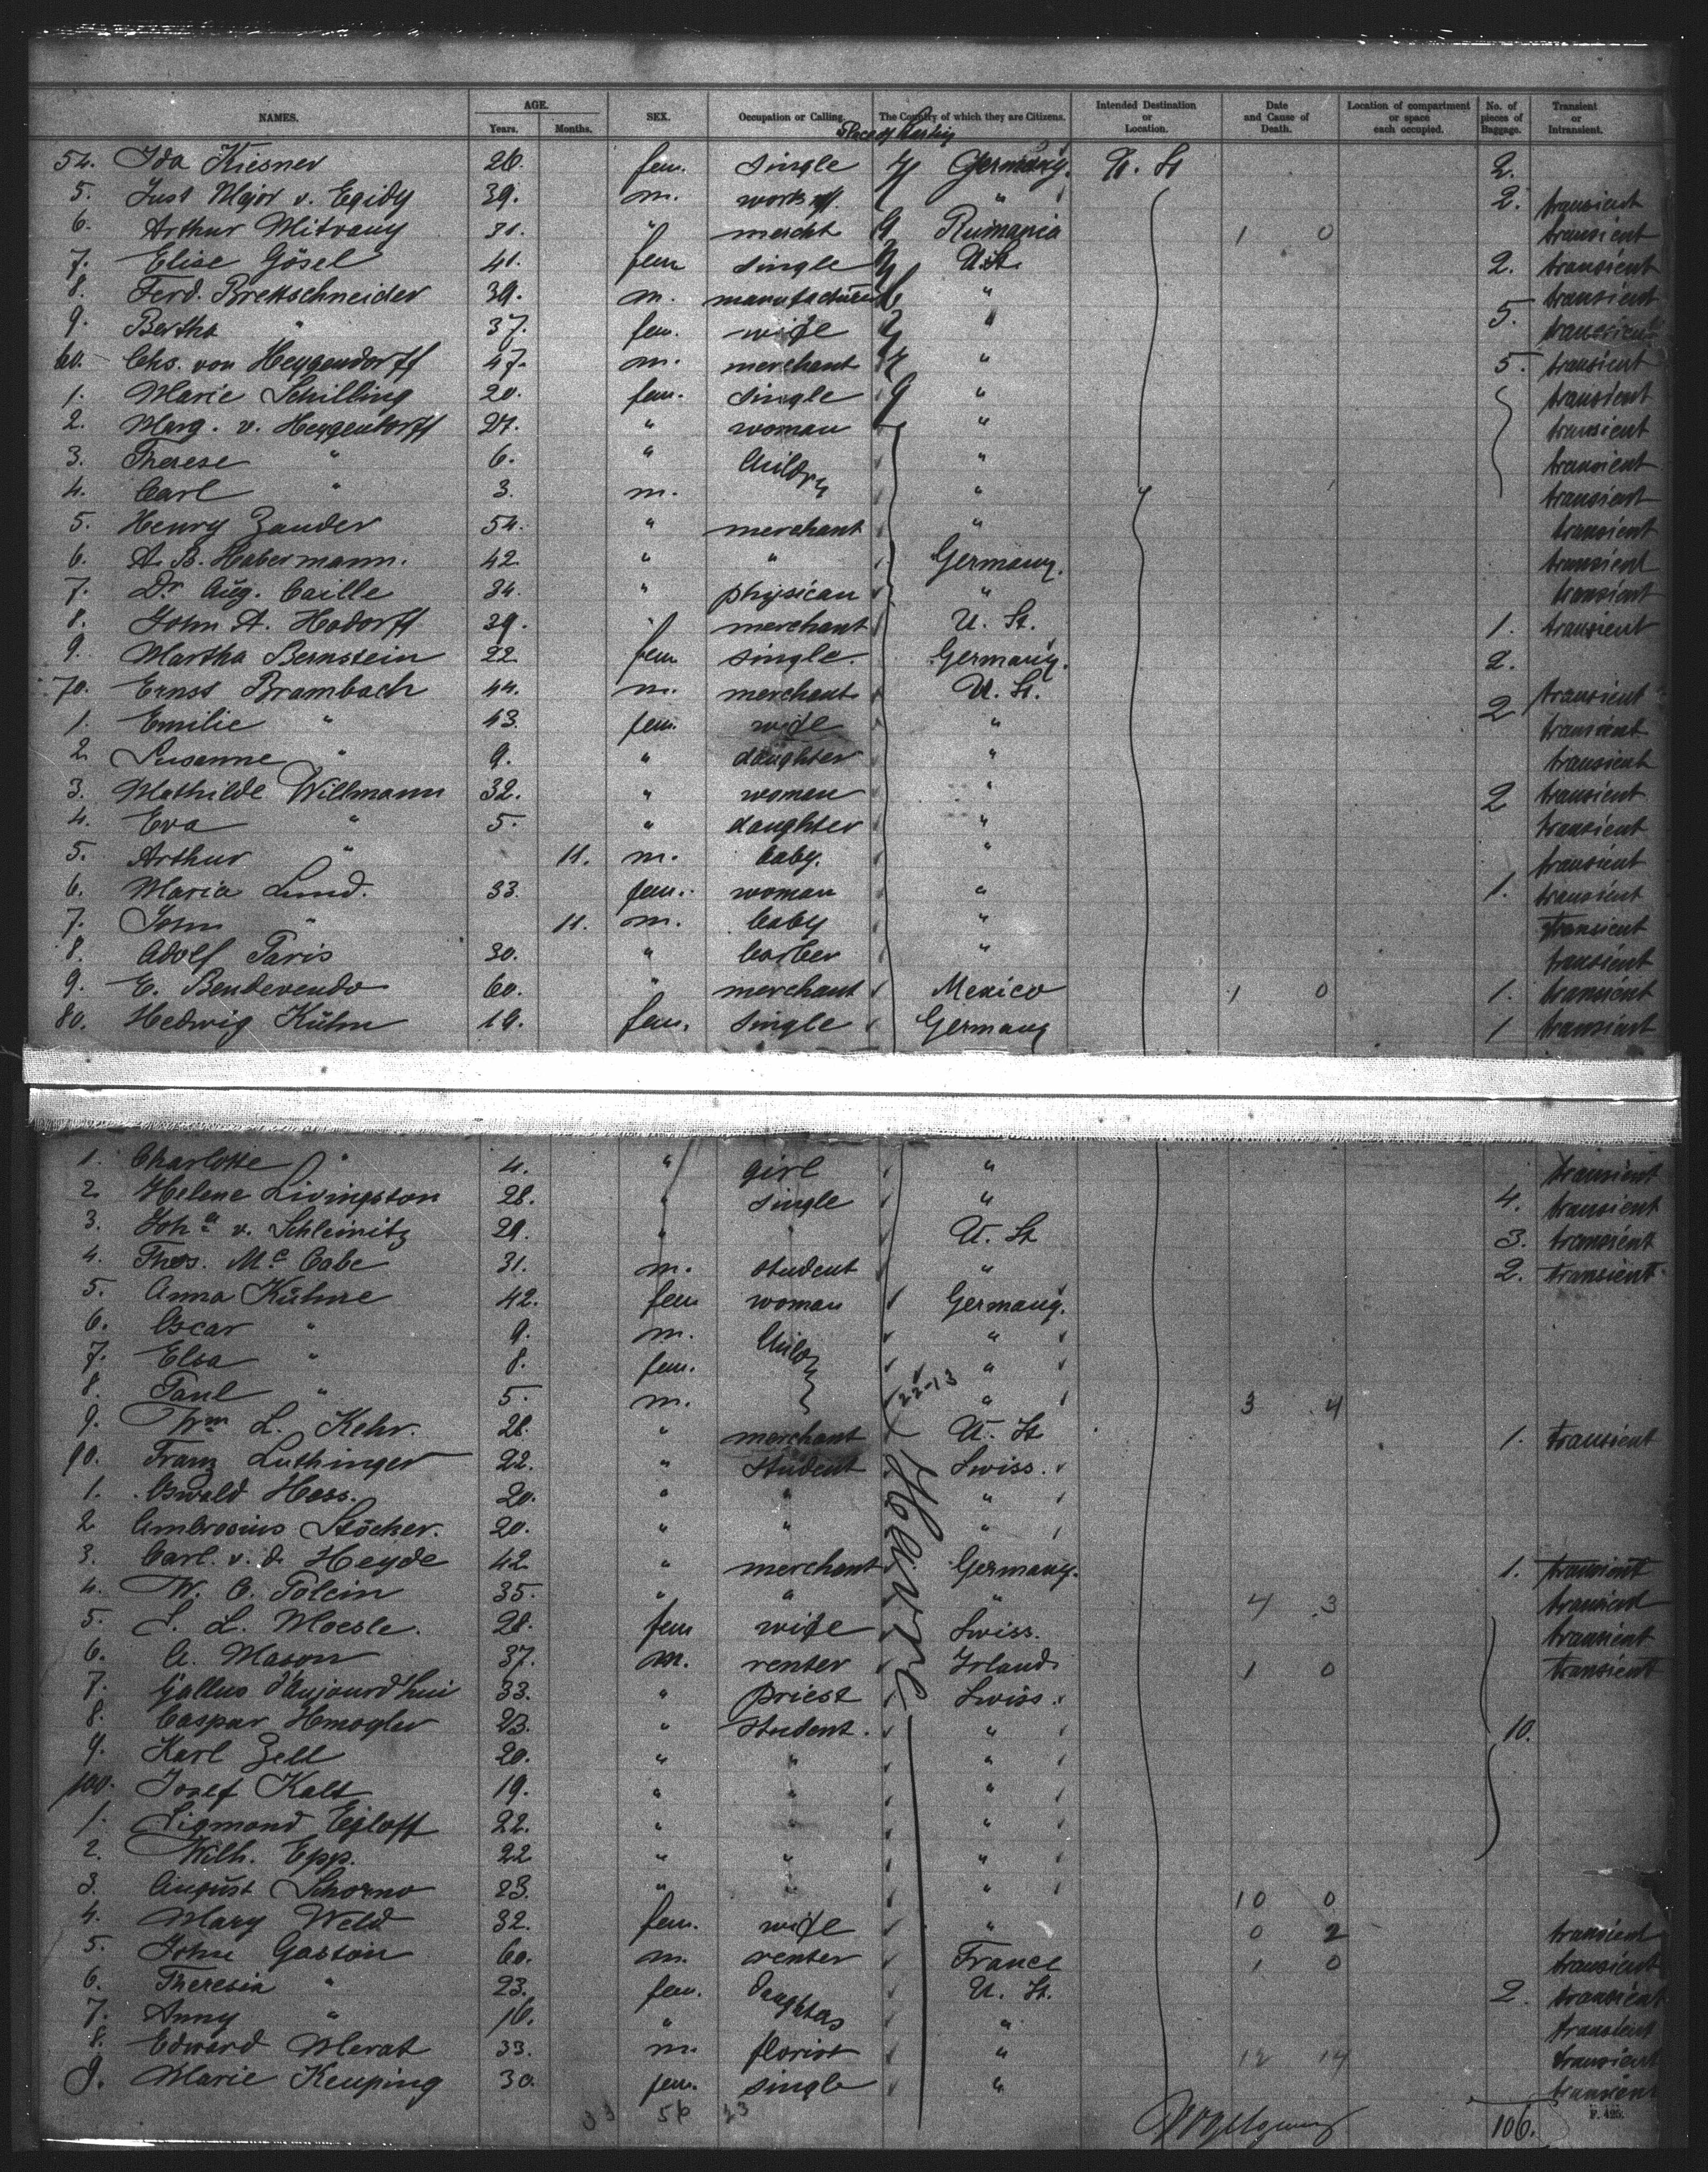 NAMES. AGE. Years. Months. SEX. Occupation or Calling. The Country of which they are Citizens. Intended Destination or Location. Date and Cause of Death. Location of compartment or space each occupied. No. of pieces of Baggage. Transient or Intransient.
54. Ida Kiesner 26. fem. single Germany. U. St 2.
5. Just Major v. Egidy 39. m. " 2. transient
6. Arthur Mitrany 31. " mercht Rumania 1 0 transient
7. Elise Gösel 41. fem single U.St. 2. transient
8. Ferd. Brettschneider 39. m. manufacturer " transient
9. Bertha " 37. fem. wife " 5. transient
60. Chs. von Heygendorff 47. m. merchant " 5. transient
1. Marie Schilling 20. fem. single " transient
2. Marg. v. Heygendorff 27. " woman " transient
3. Therese " 6. " Children " transient
4. Carl " 3. m. " transient
5. Henry Zauder 54. " merchant " transient
6. A. B. Habermann. 42. " " Germany. transient
7. Dr. Aug. Caille 34. " physican " transient
8. John A. Hadorff 39. " merchant U. St. 1. transient
9. Martha Bernstein 22. fem single. Germany. 2.
70. Ernst Brambach 44. m. merchant U. St. 2 transient
1. Emilie " 43. fem. wife " transient
2 Susanne " 9. " daughter " transient
3. Mathilde Willmann 32. " woman " 2 transient
4. Eva " 5. " daughter " transient
5. Arthur " 11. m. baby. " transient
6. Maria Lund. 33. fem. woman " 1. transient
7. John " 11. m. baby " transient
8. Adolf Paris 30. " barber " transient
9. E. Bendevendo 60. " merchant Mexico 1 0 1. transient
80. Hedwig Kühn 19. fem. single Germany 1 transient
1. Charlotte " 4. " girl " transient
2. Helene Livingston 28. " single " 4. transient
3. Joha v. Schleinitz 29. " " U. St 3. transient
4. Thos. Mc Cabe 31. m. student " 2. transient
5. Anna Kühne 42. fem woman Germany.
6. Oscar " 9. m. Child "
7. Elsa " 8. fem. "
8. Paul " 5. m. " 3 4
9. Wm L. Kehr. 28. " merchant U. St 1. transient
90. Franz Luthinger 22. " student Swiss.
1. Oswald Hess. 20. " " "
2 Ambrosius Stöcker. 20. " " "
3. Carl. v. d. Heyde 42 " merchant Germany. 1. transient
4. W. C. Polein 35. " " " 4 3 transient
5. S. L. Moesle. 28. fem wife Swiss. transient
6. A. Mason 37. m. renter Irland 1 0 transient
7. Gallus d'Aujourd'hui 33. " priest Swiss.
8. Caspar Hmogler 23. " student. " 10.
9. Karl Zell 20. " " "
100. Josef Kalt 19. " " "
1. Sigmond Egloff 22. " " "
2. Wilh. Epp. 22 " " "
3. August Schorno 23. " " " 10 0
4. Mary Weld 32. fem. wife " 0 2 transient
5. John Gaston 60. m. renter France 1 0 transient
6. Theresia " 23. fem. Daughters U. St. 2. transient
7. Anny " 16. " " transient
8. Edward Merat 33. m. florist " 12 14 transient
9. Marie Keuping 30. fem. single " transient
56 23 106.
F. 425.